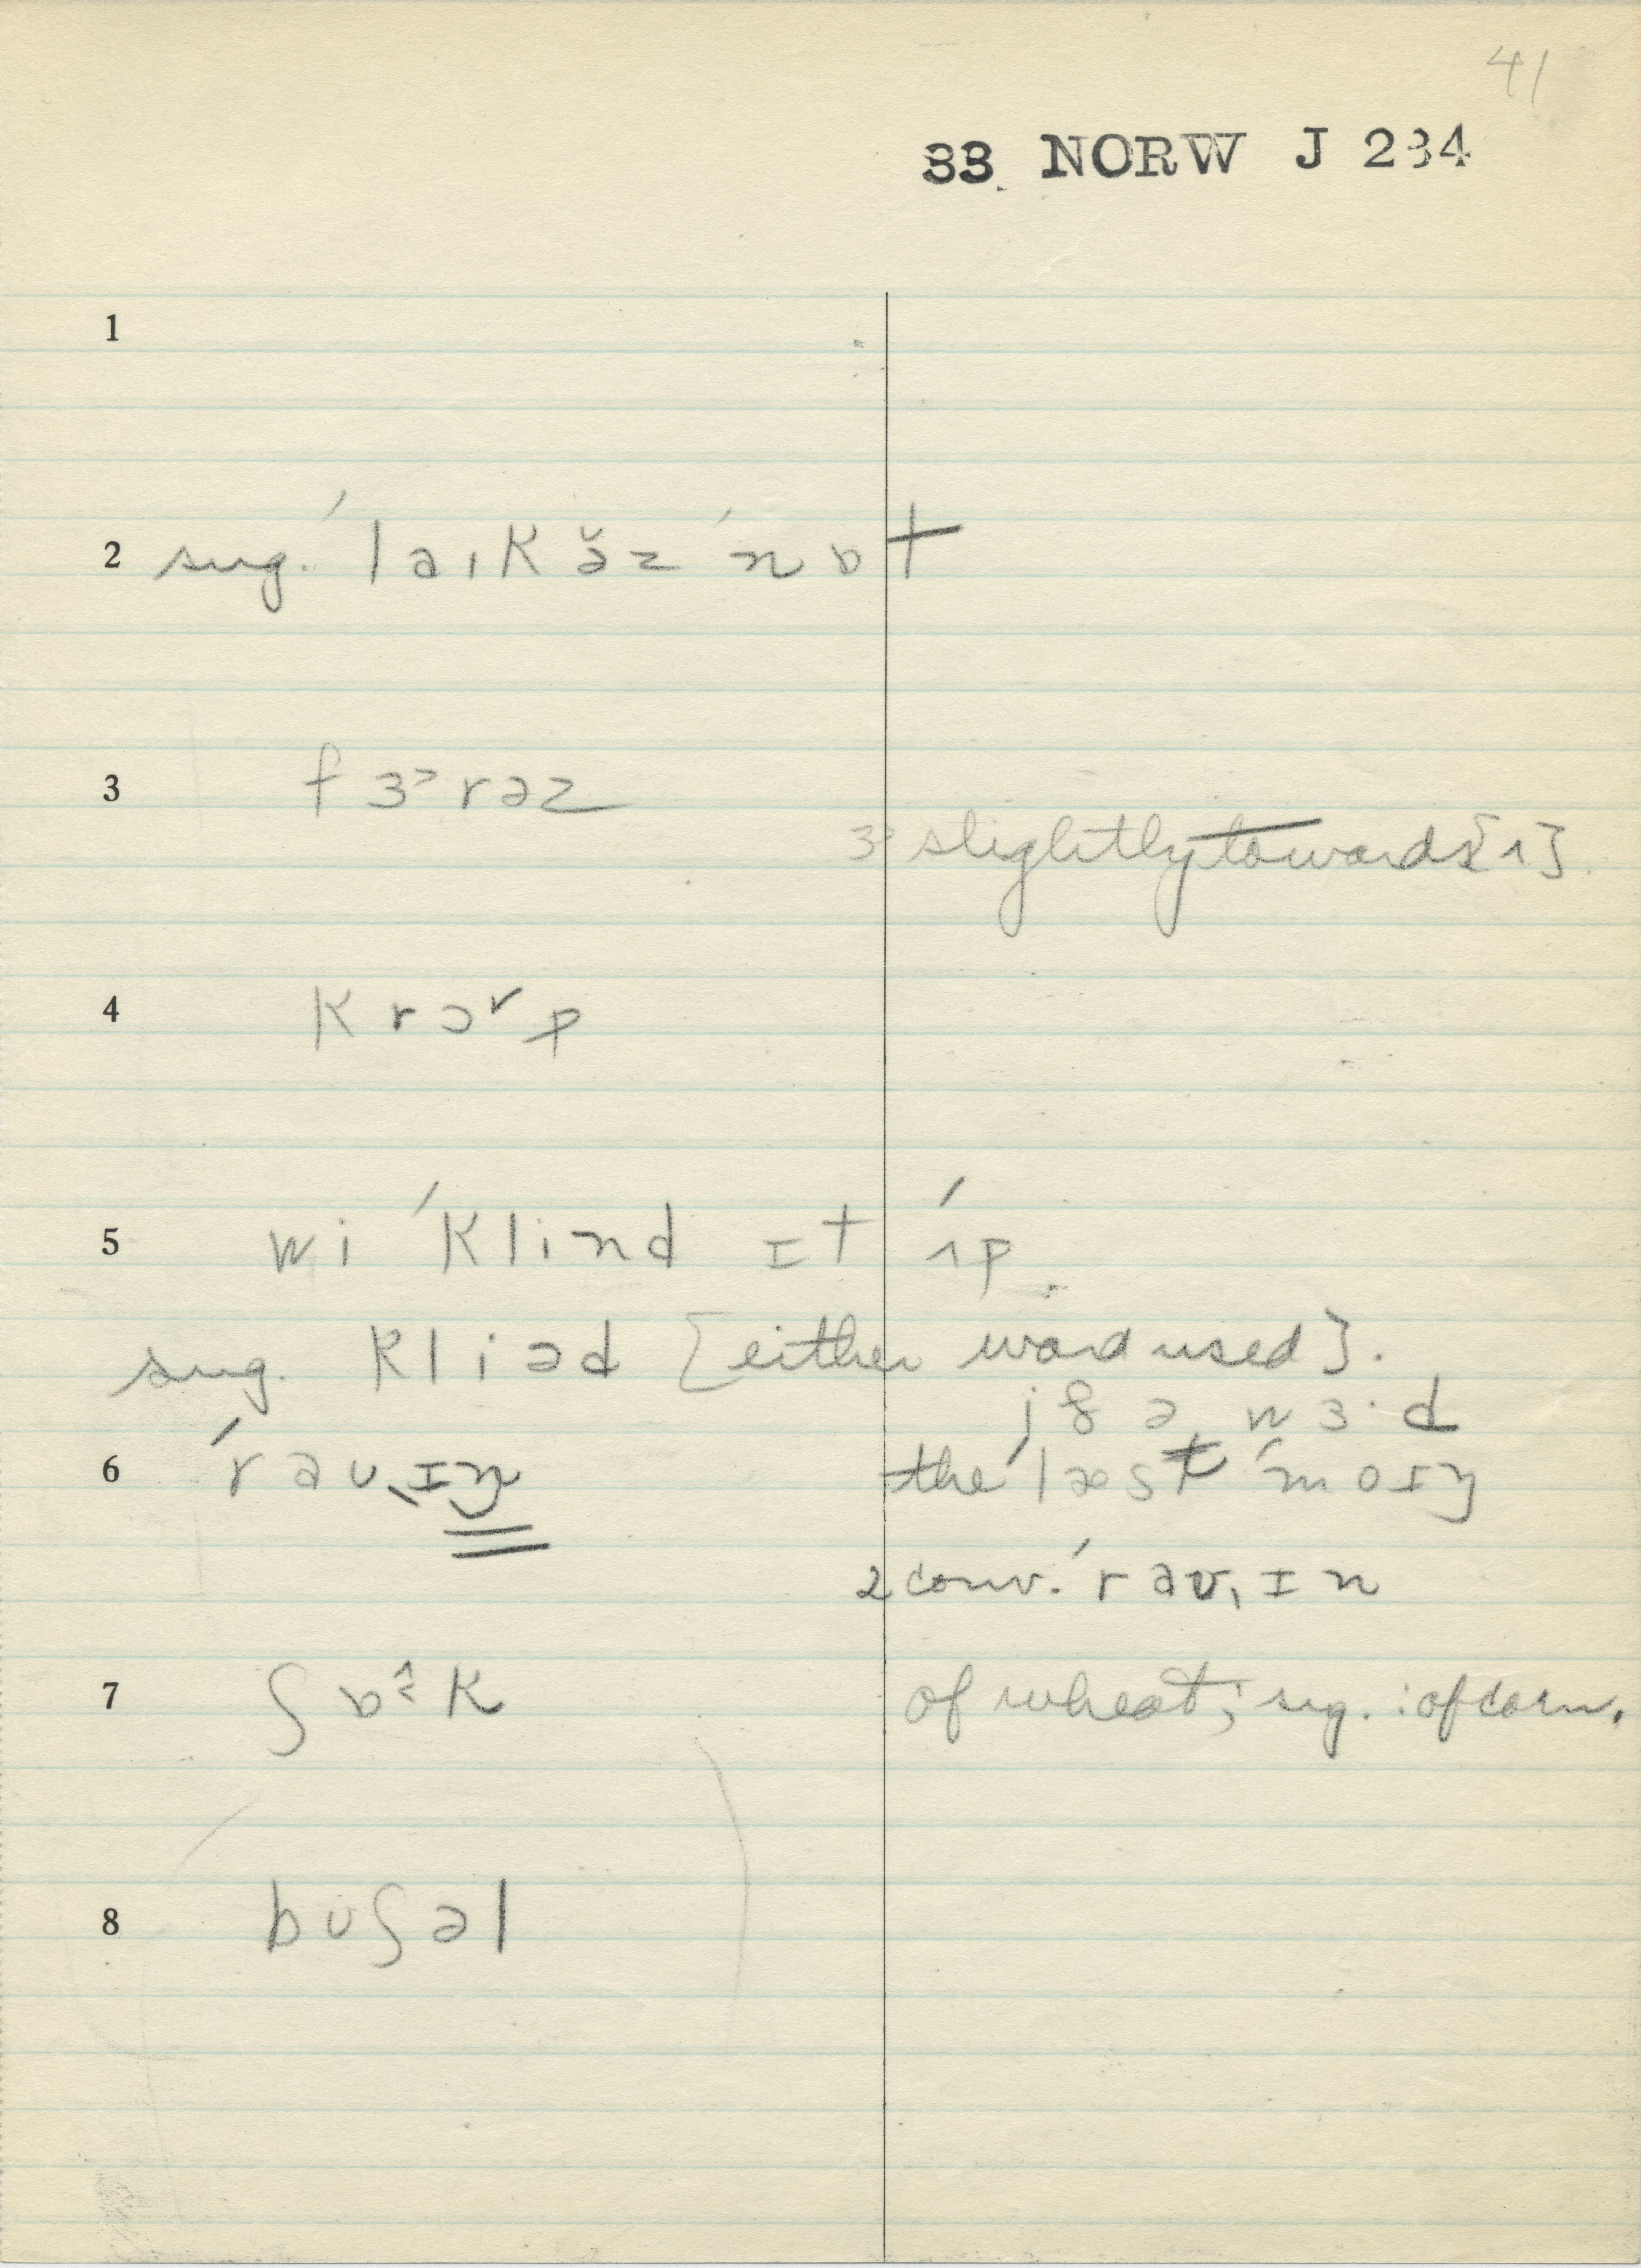 41
33 NORW J 234
1
2 sug. ˈlaɪkə̆z ˈnɒt
3 fɜ˃rəz
ɜ˃ slightly towards [ʌ].
4 krɔʳp
5 wi ˈklind ɪt ˈʌp.
sug. kliəd [either word used].
jɛ a wɜ·d
6 ˈraʊˌɪŋ the ˈlast ˈmoɪŋ
2 conv. ˈraʊˌɪn
7 ʃɒk of wheat; sug. : of corn.
8 bʊʃəl